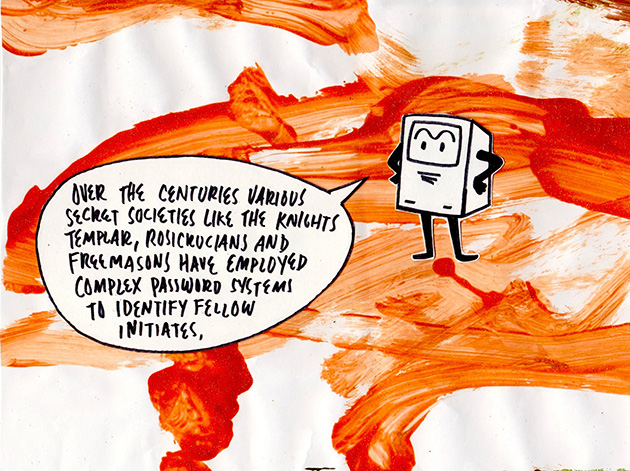 OVER THE CENTURIES VARIOUS
SECRET SOCIETIES LIKE THE KNIGHTS
TEMPLAR, ROSICRUCIANS AND
FREEMASONS HAVE EMPLOYED
COMPLEX PASSWORD SYSTEMS
TO IDENTIFY FELLOW
INITIATES,